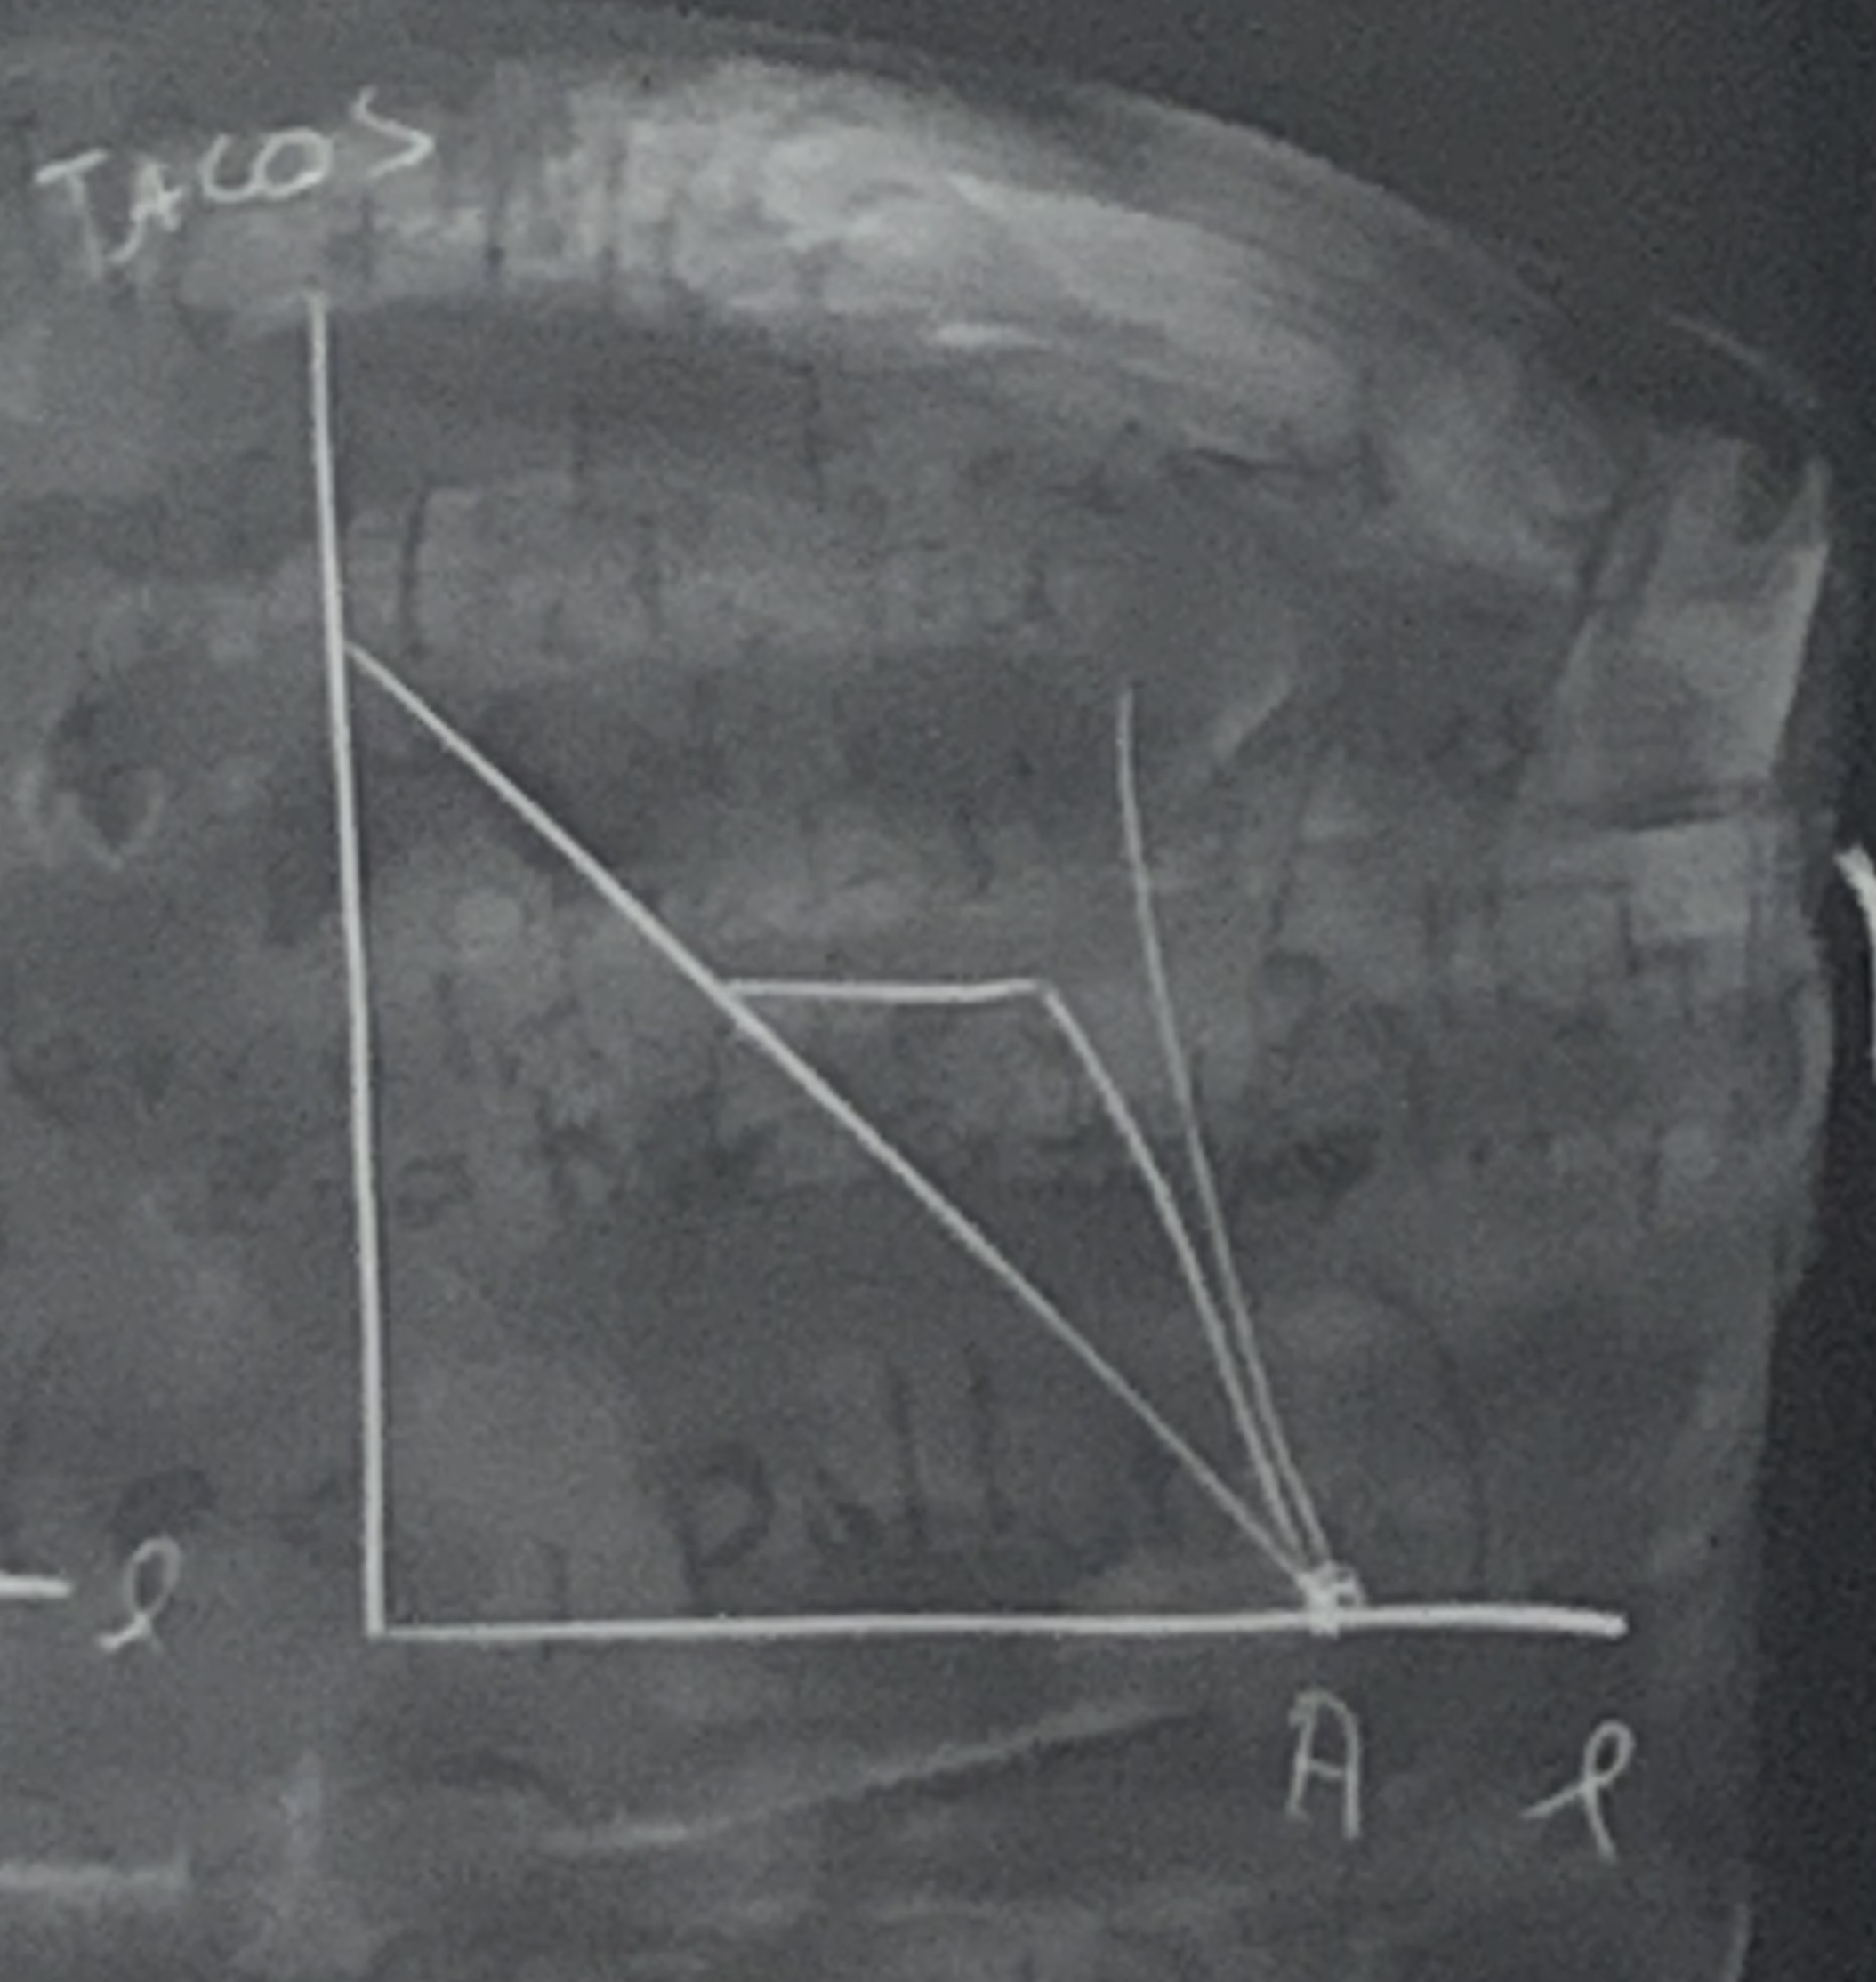 TACOS
l
A l